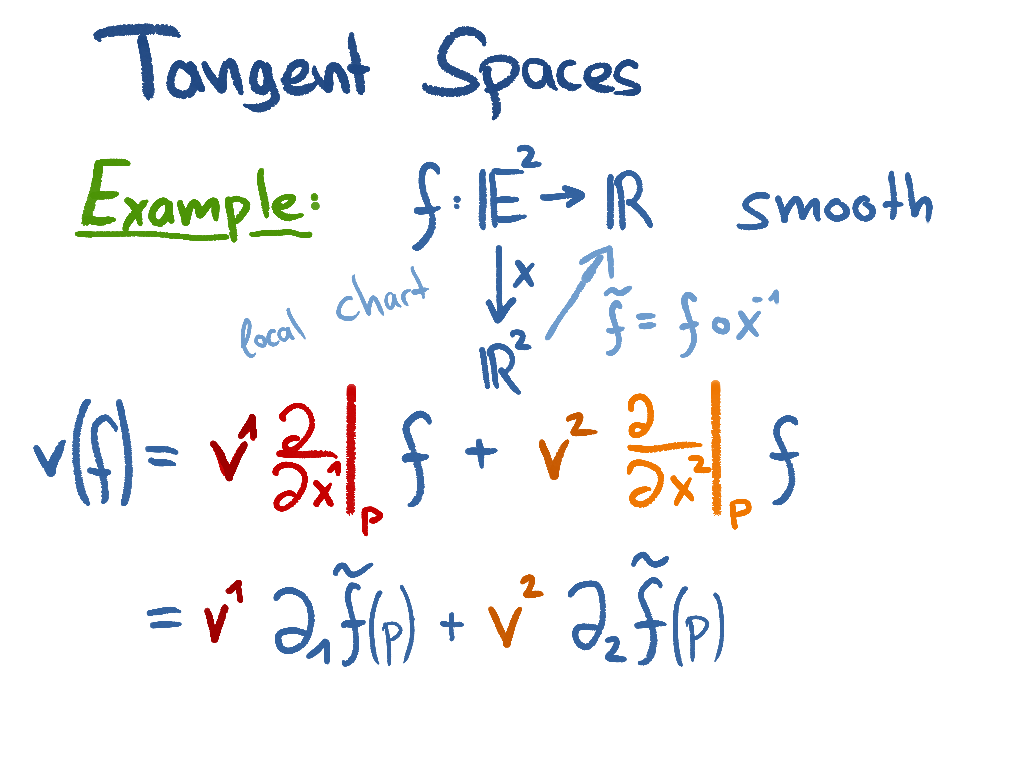 Tangent Spaces
Example: f: 𝔼² → ℝ smooth
↓ x
local chart
f̃ = f ∘ x⁻¹
ℝ²
v(f) = v¹ ∂/∂x¹|ₚ f + v² ∂/∂x²|ₚ f
= v¹ ∂₁f̃(p) + v² ∂₂f̃(p)